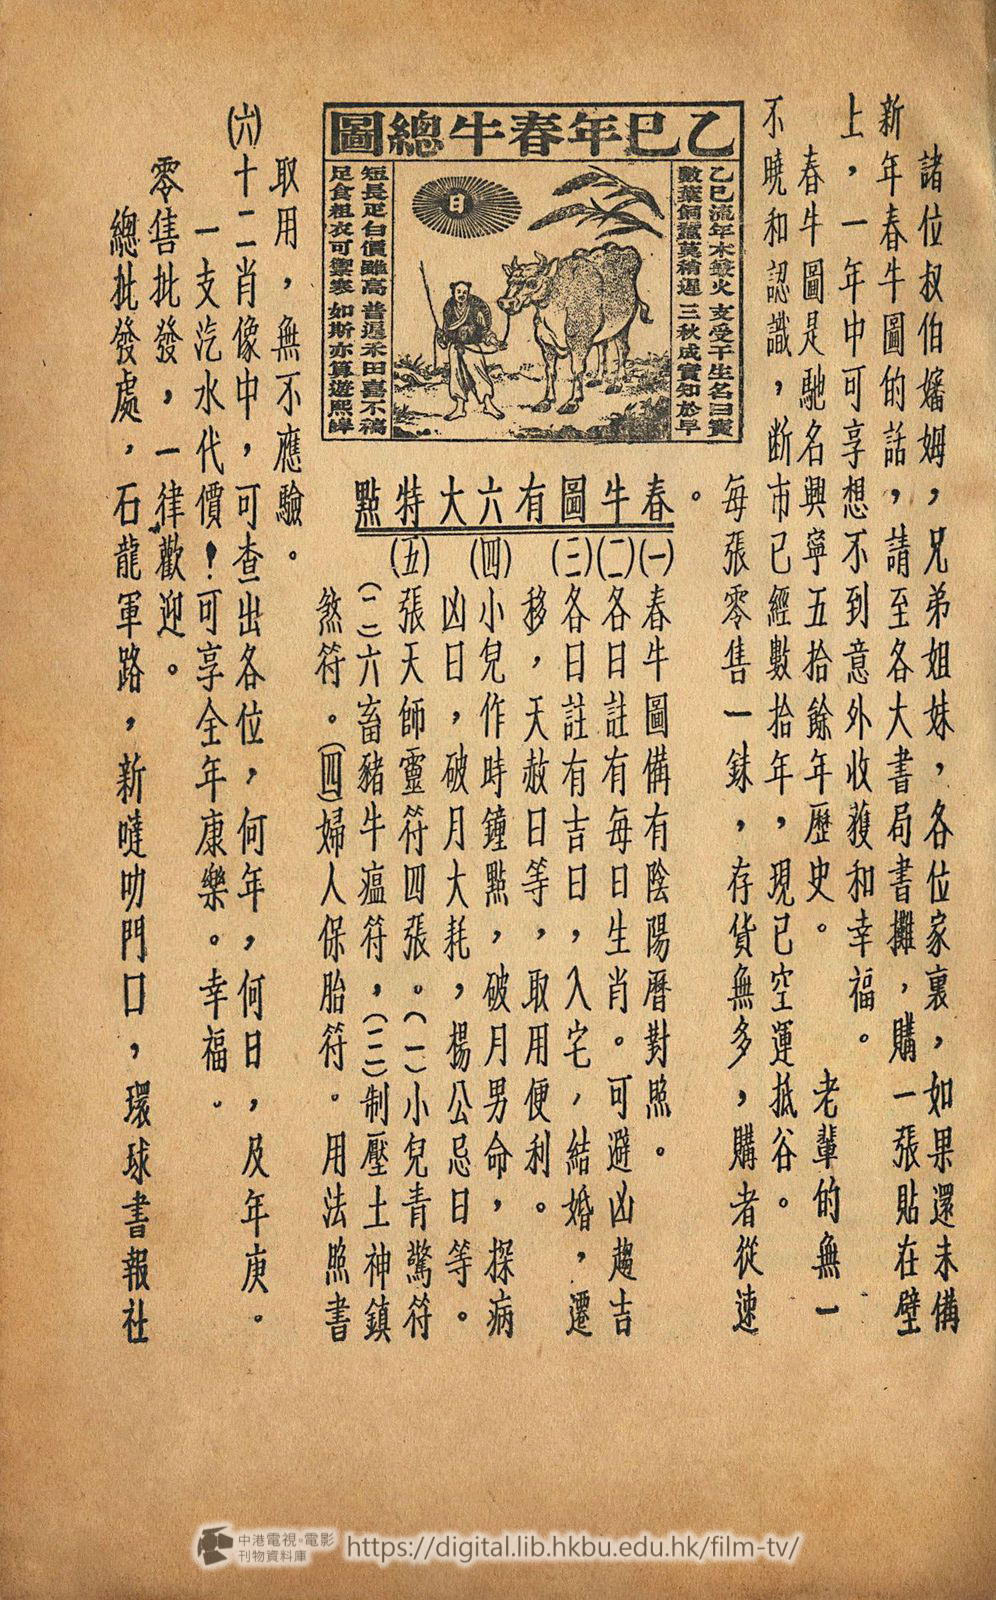 諸位叔伯嬸姆，兄弟姐妹，各位家裏，如果還未備
新年春牛圖的話，請至各大書局書攤，購一張貼在壁
上，一年中可享想不到意外收穫和幸福。
春牛圖是馳名興寧五拾餘年歷史。老輩的無一
不曉和認識，断市已經數拾年，現已空運抵谷。
每張零售一銖，存貨無多，購者從速
。
乙巳年春牛總圖
乙巳流年木鍛火 支受干生名曰寳
數葉飼蠶莫稍遲 三秋成實知於早
日
短長疋白價雖高 普遍禾田喜不稿
足食粗衣可禦寒 如斯亦算遊熙皞
春牛圖有六大特點
(一)春牛圖備有陰陽曆對照。
(二)各日註有每日生肖。可避凶趨吉
(三)各日註有吉日，入宅，結婚，遷
移，天赦日等，取用便利。
(四)小兒作時鐘點，破月男命，探病
凶日，破月大耗，楊公忌日等。
(五)張天師靈符四張。(一)小兒青驚符
(二)六畜豬牛瘟符，(三)制壓土神鎮
煞符。(四)婦人保胎符。用法照書
取用，無不應驗。
(六)十二肖像中，可查出各位，何年，何日，及年庚。
一支汽水代價！可享全年康樂。幸福。
零售批發，一律歡迎。
總批發處，石龍軍路，新噠叻門口，環球書報社
中港電視·電影
刊物資料庫
https://digital.lib.hkbu.edu.hk/film-tv/